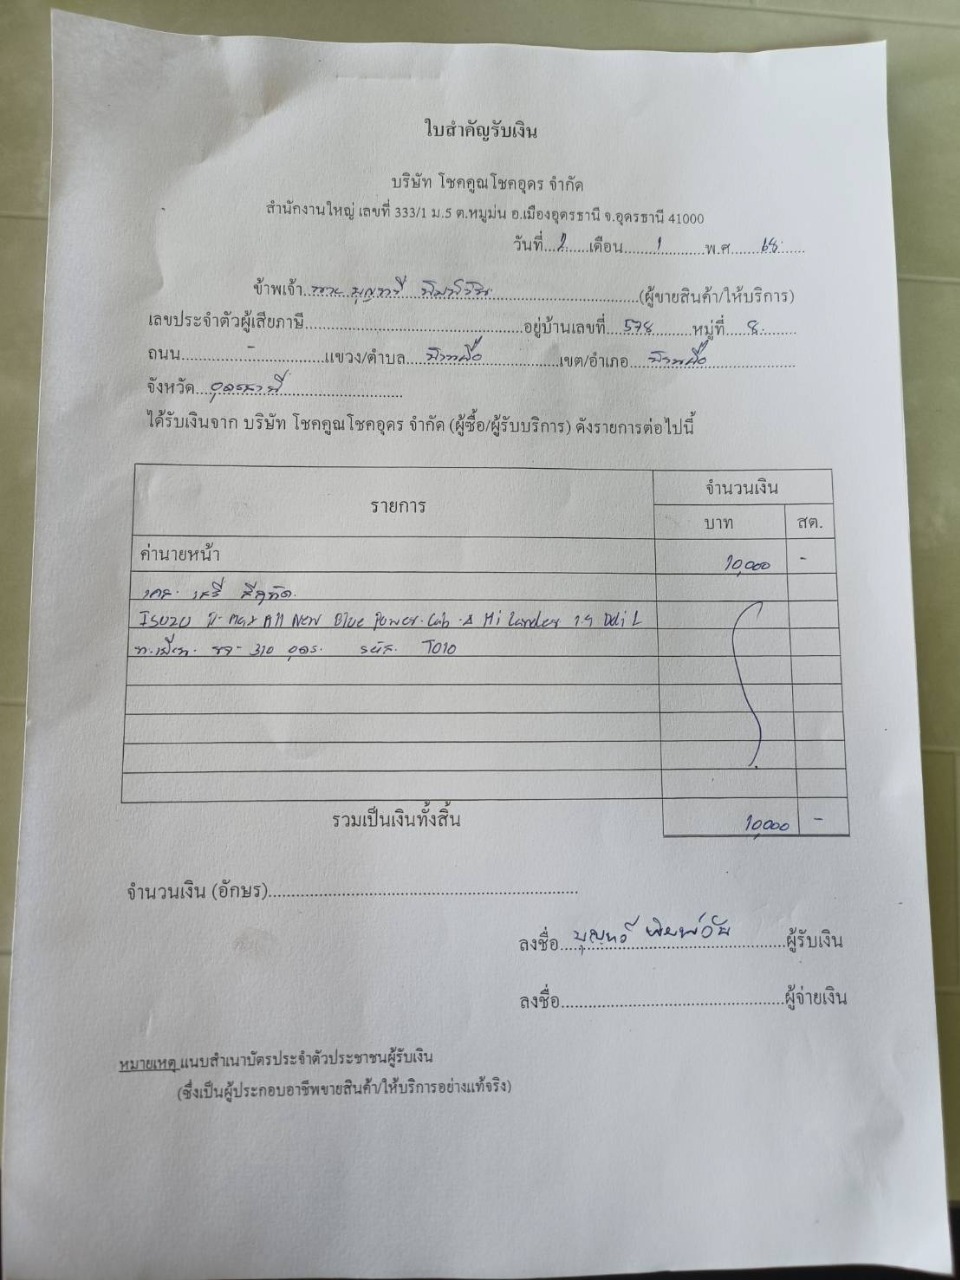 ใบสำคัญรับเงิน
บริษัท โชคคูณโชคอุดร จำกัด
สำนักงานใหญ่ เลขที่ 333/1 ม.5 ต.หมูม่น อ.เมืองอุดรธานี จ.อุดรธานี 41000
วันที่...2......เดือน.......1...........พ.ศ......68......
ข้าพเจ้า...นาย บุญทวี พิมพ์วัน...(ผู้ขายสินค้า/ให้บริการ)
เลขประจำตัวผู้เสียภาษี...อยู่บ้านเลขที่...578...หมู่ที่...8...
ถนน...-...แขวง/ตำบล...บ้านผือ...เขต/อำเภอ...บ้านผือ...
จังหวัด...อุดรธานี...
ได้รับเงินจาก บริษัท โชคคูณโชคอุดร จำกัด (ผู้ซื้อ/ผู้รับบริการ) ดังรายการต่อไปนี้
รายการ จำนวนเงิน
บาท สต.
ค่านายหน้า 10,000 -
เคส. เสรี
ISUZU D-max All New Blue Power Cab-4 Hi Lander 1.9 Ddi L
310 อุดร. รหัส. T010
รวมเป็นเงินทั้งสิ้น 10,000 -
จำนวนเงิน (อักษร)...
ลงชื่อ...บุญทวี พิมพ์วัน...ผู้รับเงิน
ลงชื่อ...ผู้จ่ายเงิน
หมายเหตุ แนบสำเนาบัตรประจำตัวประชาชนผู้รับเงิน
(ซึ่งเป็นผู้ประกอบอาชีพขายสินค้า/ให้บริการอย่างแท้จริง)